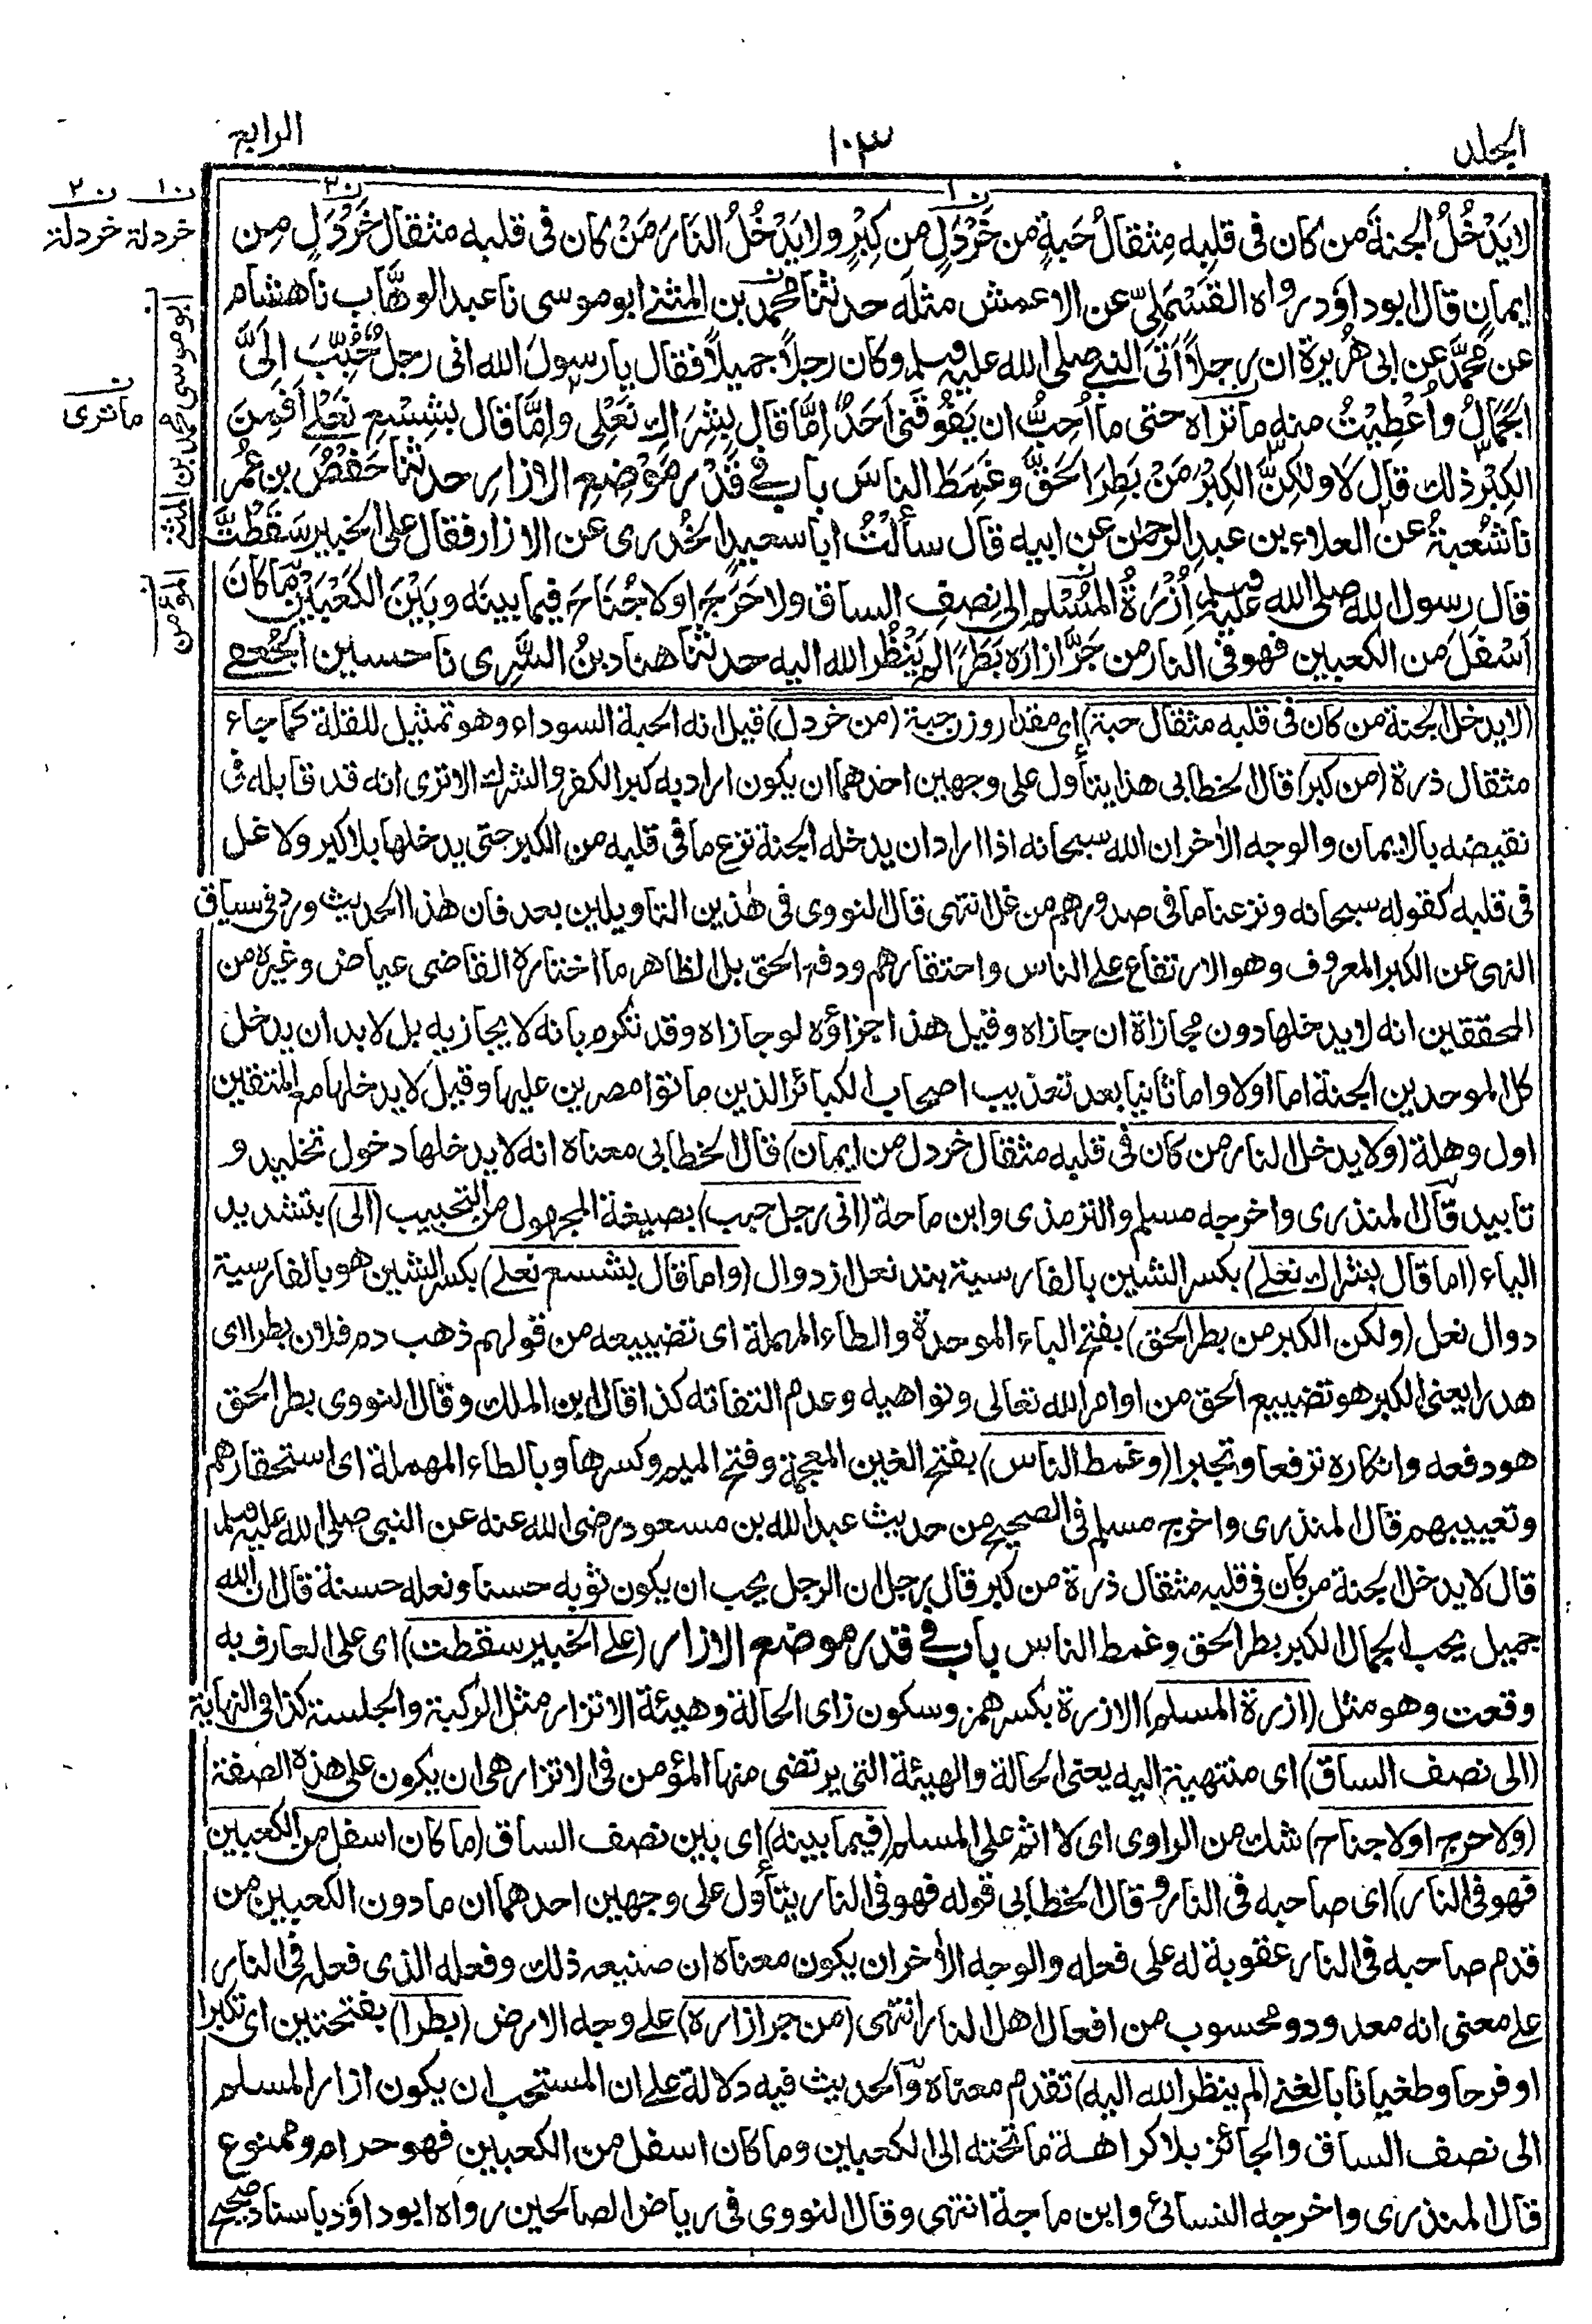 المجلد
١٠٣
الرابع
ن١ ن٢
خردلة خردلة
لا يَدْخُلُ الجنةَ من كان فى قلبِه مِثقالُ حَبةٍ من خَرْدَلٍ من كِبْرٍ ولا يَدْخُلُ النارَ مَنْ كان فى قلبه مثقال خَرْدَلٍ مِن
ايمانٍ قال ابو داؤد رواه القَسْمَلِىّ عن الاعمش مثلَه حدثنا محمد بن المثنى ابو موسى نا عبد الوهَّاب نا هشام
ابو موسى محمد بن المثنى
عن محمَّد عن ابى هُريرة ان رجلاً اتَى النبى صلى الله عليه وسلم وكان رجلاً جميلاً فقال يا رسولَ الله انى رجل حُبِّبَ اِلَىَّ
الجَمَالُ واُعْطِيْتُ منه ما تراه حتى ما اُحِبُّ ان يَفُوقَنى اَحَدٌ اِمَّا قال بِشِرَاكِ نَعْلِى واِمَّا قال بشِسْعِ نَعْلى اَفَمِنَ
ما ترى
الكِبْر ذلك قال لَا ولٰكِنَّ الكِبْرَ مَنْ بَطِرَ الحَقَّ وغَمَطَ الناسَ باب فى قَدْرِ مَوْضِعِ الازار حدثنا حَفْصُ بن عُمَر
نا شُعبةُ عن العلاء بن عبدِ الرحمٰن عن ابيه قال سألتُ ابا سعيدٍ الخُدرى عن الازار فقال على الخبير سَقَطْتَّ
قال رسول الله صلى الله عليه وسلم اُزْرَةُ المُسْلِم الى نِصفِ الساق ولا حَرَجَ او لا جُنَاحَ فيما بينَه وبَيْنَ الكَعْبَيْنِ ما كانَ
المؤمن
اَسْفَلَ من الكعبين فهو فى النار من جَرَّ ازارَه بَطَرًا لم يَنْظُرِ الله اليه حدثنا هناد بنُ السَّرِى نا حسين الجُعفى
(لا يدخل الجنة من كان فى قلبه مثقال حبة) اى مقدار وزن حبة (من خردل) قيل انه الحبة السوداء وهو تمثيل للقلة كما جاء
مثقال ذرة (من كبر) قال الخطابى هذا يتأول على وجهين احدهما ان يكون اراد به كبر الكفر والشرك الا ترى انه قد قابله فى
نقيضه بالايمان والوجه الاٰخر ان الله سبحانه اذا اراد ان يدخله الجنة نزع ما فى قلبه من الكبر حتى يدخلها بلا كبر ولا غل
فى قلبه كقوله سبحانه ونزعنا ما فى صدورهم من غل انتهى قال النووى فى هٰذين التاويلين بعد فان هٰذا الحديث ورد فى سياق
النهى عن الكبر المعروف وهو الارتفاع على الناس واحتقارهم ودفع الحق بل الظاهر ما اختاره القاضى عياض وغيره من
المحققين انه لا يدخلها دون مجازاة ان جازاه وقيل هذا جزاؤه لو جازاه وقد تكرم بانه لا يجازيه بل لا بد ان يدخل
كل الموحدين الجنة اما اولا واما ثانيا بعد تعذيب اصحاب الكبائر الذين ماتوا مصرين عليها وقيل لا يدخلها مع المتقين
اول وهلة (ولا يدخل النار من كان فى قلبه مثقال خردل من ايمان) قال الخطابى معناه انه لا يدخلها دخول تخليد و
تابيد قال المنذرى واخرجه مسلم والترمذى وابن ماجة (انى رجل حبب) بصيغة المجهول من التحبيب (الى) بتشديد
الباء (اما قال بشراك نعلى) بكسر الشين بالفارسية بند نعل از دوال (واما قال بشسع نعلى) بكسر الشين هو بالفارسية
دوال نعل (ولكن الكبر من بطر الحق) بفتح الباء الموحدة والطاء المهملة اى تضييعه من قولهم ذهب دم فلان بطرا اى
هدرا يعنى الكبر هو تضييع الحق من اوامر الله تعالى ونواهيه وعدم التفاته كذا قال ابن الملك وقال النووى بطر الحق
هو دفعه وانكاره ترفعا وتجبرا (وغمط الناس) بفتح الغين المعجمة وفتح الميم وكسرها وبالطاء المهملة اى استحقارهم
وتعييبهم قال المنذرى واخرج مسلم فى الصحيح من حديث عبد الله بن مسعود رضى الله عنه عن النبى صلى الله عليه وسلم
قال لا يدخل الجنة من كان فى قلبه مثقال ذرة من كبر قال رجل ان الرجل يحب ان يكون ثوبه حسنا ونعله حسنة قال ان الله
جميل يحب الجمال الكبر بطر الحق وغمط الناس باب فى قدر موضع الازار (على الخبير سقطت) اى على العارف به
وقعت وهو مثل (ازرة المسلم) الازرة بكسر همز وسكون زاى الحالة وهيئة الاتزار مثل الركبة والجلسة كذا فى النهاية
(الى نصف الساق) اى منتهية اليه يعنى الحالة والهيئة التى يرتضى منها المؤمن فى الاتزار هى ان يكون على هذه الصفة
(ولا حرج او لا جناح) شك من الراوى اى لا اثم على المسلم (فيما بينه) اى بين نصف الساق (ما كان اسفل من الكعبين
فهو فى النار) اى صاحبه فى النار وقال الخطابى قوله فهو فى النار يتأول على وجهين احدهما ان ما دون الكعبين من
قدم صاحبه فى النار عقوبة له على فعله والوجه الاٰخر ان يكون معناه ان صنيعه ذلك وفعله الذى فعله فى النار
على معنى انه معدود ومحسوب من افعال اهل النار انتهى (من جر ازاره) على وجه الارض (بطرا) بفتحتين اى تكبرا
او فرحا وطغيانا بالغنى (لم ينظر الله اليه) تقدم معناه والحديث فيه دلالة على ان المستحب ان يكون ازار المسلم
الى نصف الساق والجائز بلا كراهة ما تحته الى الكعبين وما كان اسفل من الكعبين فهو حرام وممنوع
قال المنذرى واخرجه النسائى وابن ماجة انتهى وقال النووى فى رياض الصالحين رواه ابو داؤد باسناد صحيح